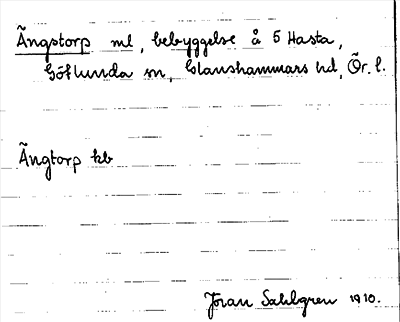 Ängstorp ml, bebyggelse å 5 Hasta,
Götlunda sn, Glanshammars hd, Ör. l.
Ängtorp kb
Jöran Sahlgren 1910.